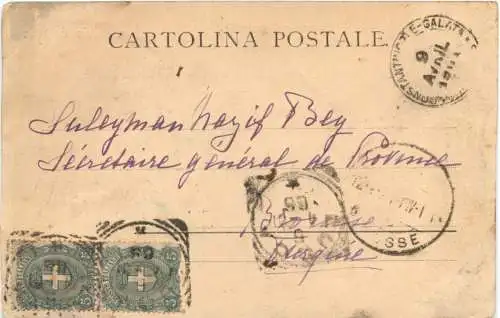 CARTOLINA POSTALE
CONSTANTINOPLE-GALATA
9
AVRIL
Suleyman Nazif Bey
Secrétaire général de Province
Brousse
Turquie